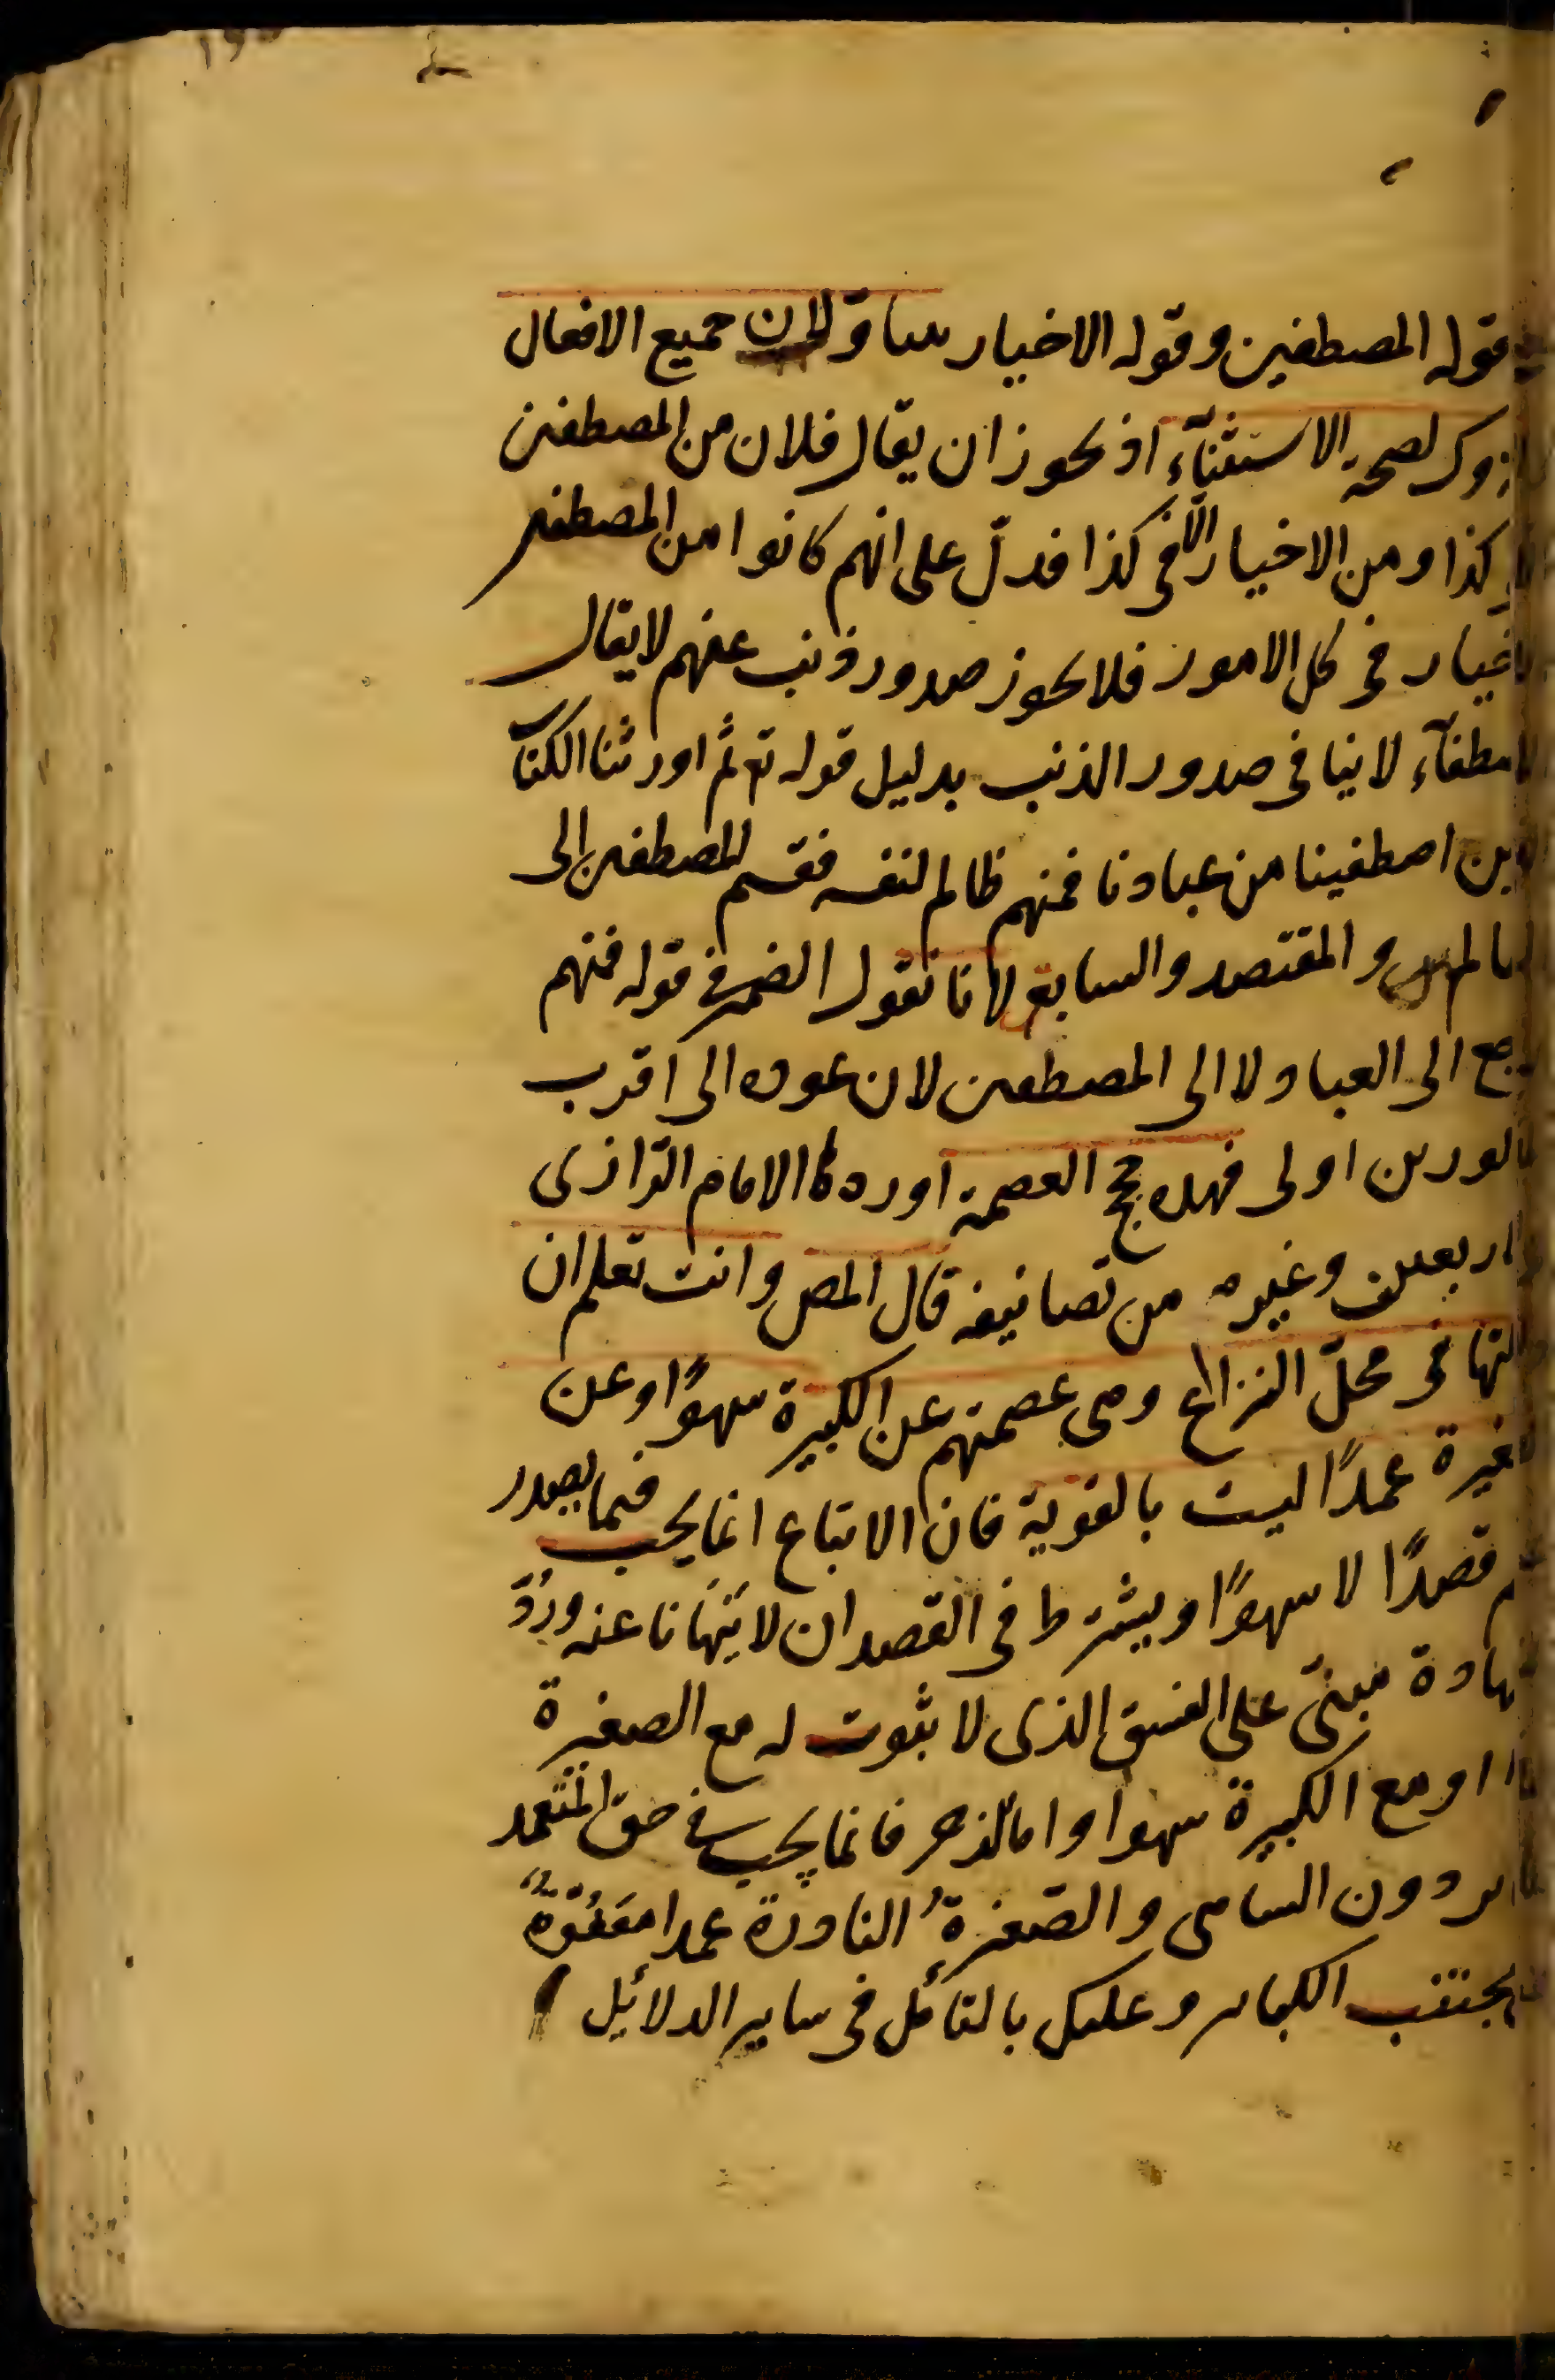 قوله المصطفين وقوله الاخيار يتناولان جميع الافعال
والتروك لصحة الاستثنآء اذ يجوز ان يقال فلان من المصطفين
الا فى كذا ومن الاخيار الّا فى كذا فدلّ على انهم كانوا من المصطفين
الاخيار فى كل الامور فلا يجوز صدور ذنب عنهم لا يقال
الاصطفآء لا ينافى صدور الذنب بدليل قوله تع ثم اورثنا الكتاب
الذين اصطفينا من عبادنا فمنهم ظالم لنفسه فقسم المصطفين الى
الظالم والمقتصد والسابق لانا نقول الضمير فى قوله فمنهم
راجع الى العباد لا الى المصطفين لان عوده الى اقرب
المذكورين اولى فهذه حجج العصمة اوردها الامام الرّازى
فى الاربعين وغيره من تصانيفه قال المص وانت تعلم ان
دلالتها فى محلّ النزاع وهى عصمتهم عن الكبيرة سهوًا وعن
الصغيرة عمدًا ليست بالقوية فان الاتباع انما يجب فيما يصدر
عنهم قصدًا لا سهوًا ويشترط فى القصد ان لا ينهانا عنه وردّ
الشهادة مبنىّ على الفسق الذى لا ثبوت له مع الصغيرة
عمدا او مع الكبيرة سهوا واما الزجر فانما يجب فى حق المتعمد
للكبائر دون الساهى والصّغيرةُ النادرة عمدا معفوّةٌ
عن مجتنب الكبائر وعليك بالتأمّل فى ساير الدلائيل